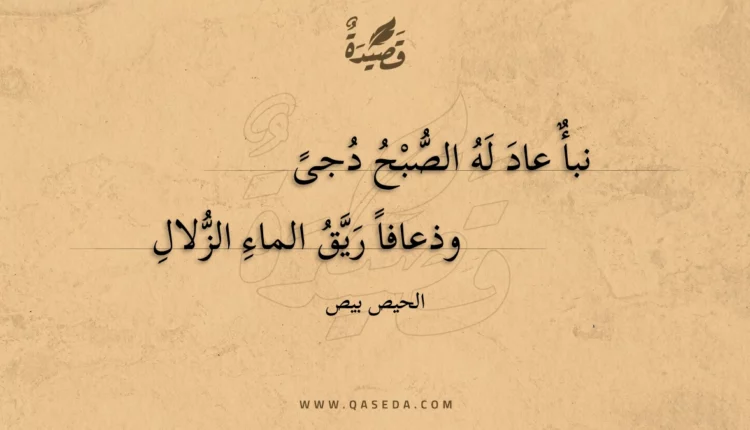 قَصِيْدَةٌ
نبأٌ عادَ لَهُ الصُّبْحُ دُجىً
وذعافاً رَيَّقُ الماءِ الزُّلالِ
الحيص بيص
WWW.QASEDA.COM